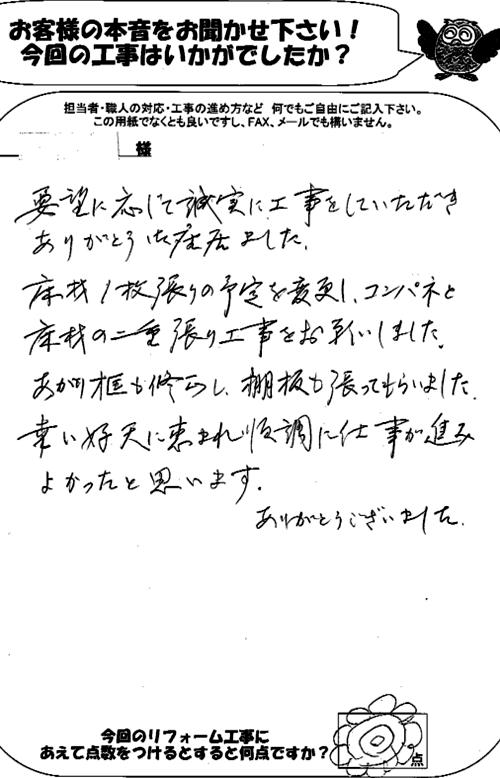 お客様の本音をお聞かせ下さい！
今回の工事はいかがでしたか？
担当者・職人の対応・工事の進め方など 何でもご自由にご記入下さい。
この用紙でなくとも良いですし、FAX、メールでも構いません。
様
要望に応じて誠実に工事をしていただき
ありがとうございました。
床材1枚張りの予定を変更し、コンパネと
床材の二重張り工事をお願いしました。
あがり框も修らし、棚板も張ってもらいました。
幸い好天に恵まれ順調に仕事が進み
よかったと思います。
ありがとうございました。
今回のリフォーム工事に
あえて点数をつけるとすると何点ですか？
点